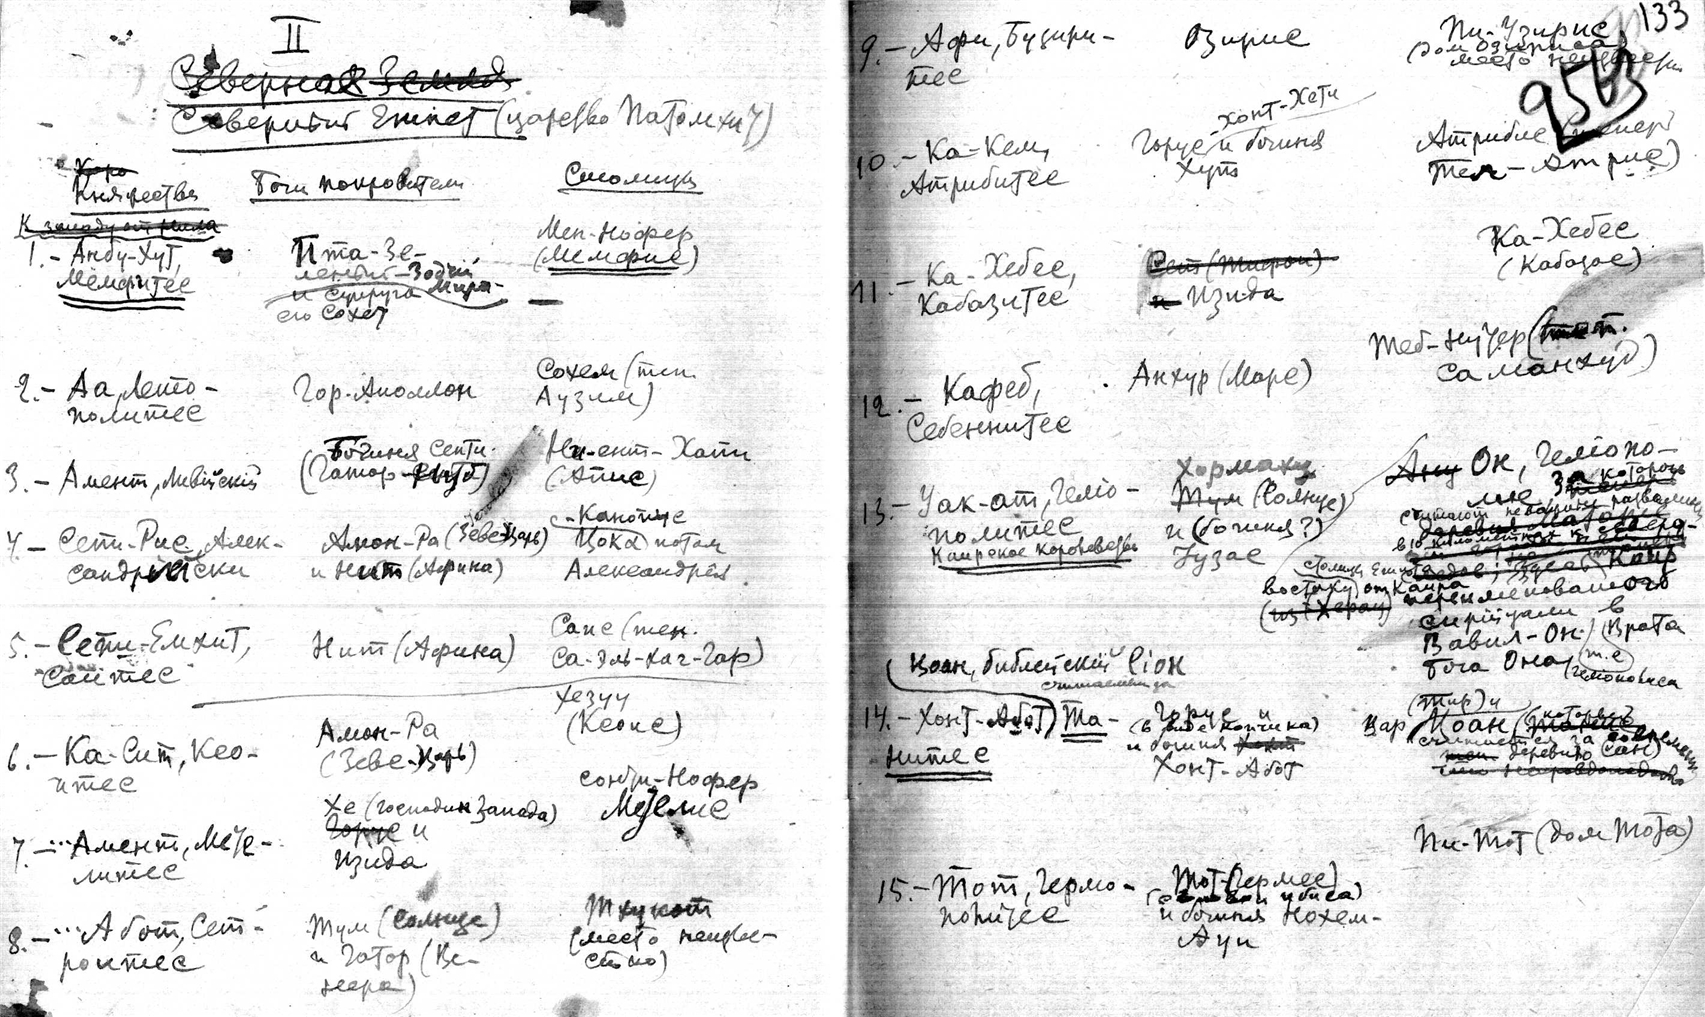 II
Северная Земля
Северный Египет (царство Патомхит)
Княжества
Боги покровители
Столицы
К западу от Нила
1.- Анбу-Хут,
Мемфитес
Пта-Зе-
леный-Зодчий
Мира-
и супруга
его Сохет
Мен-Нофер
(Мемфис)
2.- Аа, Лето-
политес
Гор-Аполлон
Сохем (теп.
Аузим)
3.- Амент, Ливийский
Богиня Септи-
(Гатор-
Ни-ент-Хапи
(Апис)
4.- Сепи-Рис, Алек-
сандрийски
Амон-Ра (Зевс-Царь)
и Нит (Афина)
-Канопус
Цока потом
Александрия
5.- Сепи-Емхит,
Саитес
Нит (Афина)
Саис (теп.
Са-Эль-Хаг-Гар)
6.- Ка-Сит, Ксо-
итес
Амон-Ра
(Зевс-Царь)
Хезуу
(Ксоис)
7.- Амент, Мете-
литес
Хе (господин Запада)
Горус и
Изида
Сонти-Нофер
Метелис
8.- Абот, Сет-
роитес
Тум (Солнце)
и Гатор (Ве-
нера)
Тхукот
(место неизве-
стно)
133
9.- Афи, Бузири-
тес
Озирис
Пи-Узирис
(Дом Озириса)
место неизвестн
10.- Ка-Кем,
Атрибитес
-Хонт-Хети
Горус и богиня
Хут
Атрибис (теперь
Тел-Атрис)
11.- Ка-Хебес,
Кабазитес
Сет (Тифон)
и Изида
Ка-Хебес
(Кабазас)
12.- Кафеб,
Себеннитес
Анхур (Марс)
Теб-нутер (теп.
Саманхуд)
13.- Уак-ат, Гелио-
политес
Каирское Королевство
Хормаху
Тум (Солнце)
и (богиня?)
Тузас
Ану Он, Гелиопо-
лис, за который
считают
развалины
в 10 километрах к северо-
востоку от Каира
переименованного
в
Вавил-Он. (Врата
Бога Она) т.е
Гелиополиса
Цоан, библейский Сион
считаемый за
14.- Хонт-Абот) Та-
нитес
Горус и
(в виде копчика)
и богиня
Хонт-Абот
(Тир) и
Цар Цоан (который
считается за современн
деревню Сан)
15.- Тот, Гермо-
политес
Тот (Гермес)
и ибиса)
и богиня Нохем-
Ауи
Пи-Тот (Дом Тота)